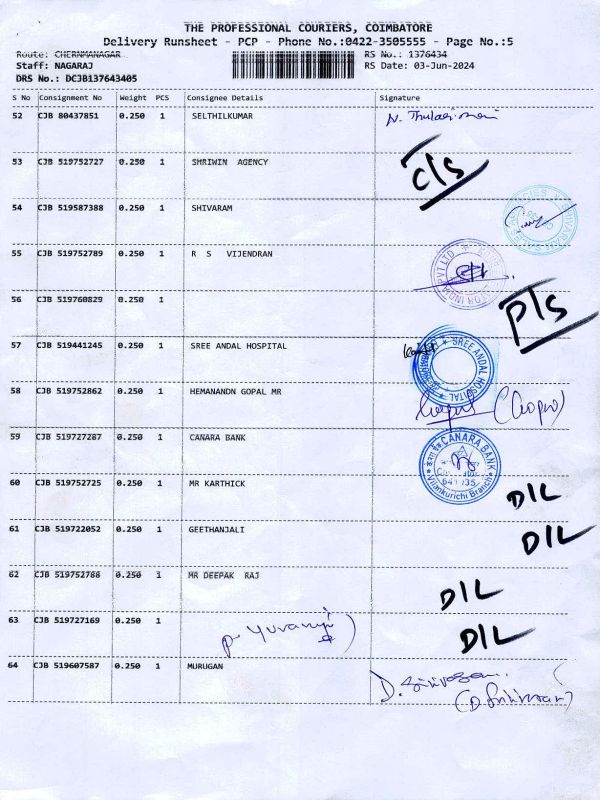 THE PROFESSIONAL COURIERS, COIMBATORE
Delivery Runsheet - PCP - Phone No.:0422-3505555 - Page No.:5
Route: CHERNMANAGAR RS No.: 1376434
Staff: NAGARAJ RS Date: 03-Jun-2024
DRS No.: DCJB137643405
S No Consignment No Weight PCS Consignee Details Signature
52 CJB 80437851 0.250 1 SELTHILKUMAR
53 CJB 519752727 0.250 1 SHRIWIN AGENCY C/S
54 CJB 519587388 0.250 1 SHIVARAM
55 CJB 519752789 0.250 1 R S VIJENDRAN
56 CJB 519760829 0.250 1 P/S
57 CJB 519441245 0.250 1 SREE ANDAL HOSPITAL SREE ANDAL HOSPITAL
58 CJB 519752862 0.250 1 HEMANANDN GOPAL MR
59 CJB 519727287 0.250 1 CANARA BANK CANARA BANK Vilankurichi Branch
60 CJB 519752725 0.250 1 MR KARTHICK D/L
61 CJB 519722052 0.250 1 GEETHANJALI D/L
62 CJB 519752788 0.250 1 MR DEEPAK RAJ D/L
63 CJB 519727169 0.250 1 D/L
64 CJB 519607587 0.250 1 MURUGAN